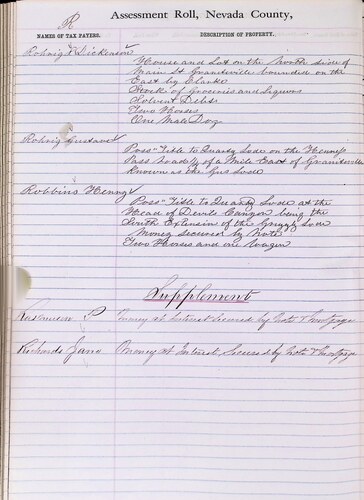 R
Assessment Roll, Nevada County,
NAMES OF TAX PAYERS.
DESCRIPTION OF PROPERTY.
Rohrig & Dickenson
House and Lot on the North side of
Main St Graniteville bounded on the
East by Clarke
Stock of Groceries and Liquors
Solvent Debts
Two Horses
One Male Dog
Rohrig Gustave
Poss" Title to Quartz Lode on the
Pass Road ½ of a Mile East of Graniteville
Known as the Gus Lode
Robbins Henry
Poss" Title to Quartz Lode at the
Head of Devils Canyon being the
South Extension of the Grizly Lode
Money secured by Note
Two Horses and one Wagon
Supplement
Rasmuson P
Money at Interest secured by Note & Mortgage
Richards Jane
Money at Interest, Secured by Note & Mortgage